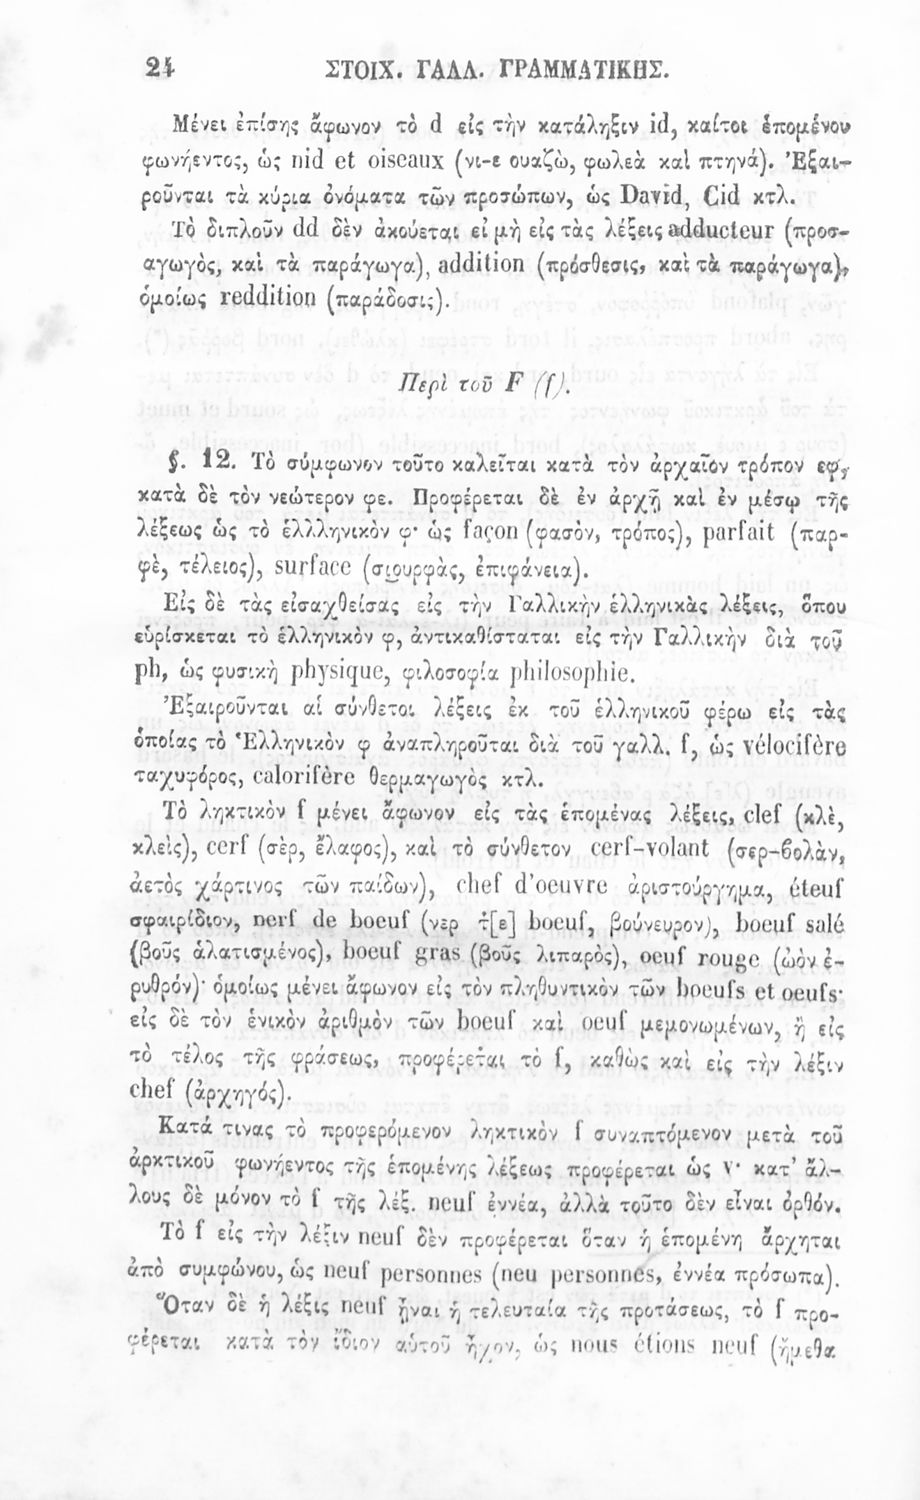 24 ΣΤΟΙΧ. ΓΑΛΛ. ΓΡΑΜΜΑΤΙΚΗΣ.
Μένει ἐπίσης ἄφωνον τὸ d εἰς τὴν κατάληξιν id, καίτοι ἑπομένου
φωνήεντος, ὡς nid et oiseaux (νι-ε ουαζὼ, φωλεὰ καὶ πτηνά). Ἐξαι-
ροῦνται τὰ κύρια ὀνόματα τῶν προσώπων, ὡς David, Cid κτλ.
Τὸ διπλοῦν dd δὲν ἀκούεται εἰ μὴ εἰς τὰς λέξεις adducteur (προσ-
αγωγὸς, καὶ τὰ παράγωγα), addition (πρόσθεσις, καὶ τὰ παράγωγα),
ὁμοίως reddition (παράδοσις).
Περὶ τοῦ F (f).
§. 12. Τὸ σύμφωνον τοῦτο καλεῖται κατὰ τὸν ἀρχαῖον τρόπον εφ,
κατὰ δὲ τὸν νεώτερον φε. Προφέρεται δὲ ἐν ἀρχῇ καὶ ἐν μέσῳ τῆς
λέξεως ὡς τὸ ἑλλληνικὸν φ· ὡς façon (φασὸν, τρόπος), parfait (παρ-
φὲ, τέλειος), surface (σιουρφὰς, ἐπιφάνεια).
Εἰς δὲ τὰς εἰσαχθείσας εἰς τὴν Γαλλικὴν ἑλληνικὰς λέξεις, ὅπου
εὑρίσκεται τὸ ἑλληνικὸν φ, ἀντικαθίσταται εἰς τὴν Γαλλικὴν διὰ τοῦ
ph, ὡς φυσικὴ physique, φιλοσοφία philosophie.
Ἐξαιροῦνται αἱ σύνθετοι λέξεις ἐκ τοῦ ἑλληνικοῦ φέρω εἰς τὰς
ὁποίας τὸ Ἑλληνικὸν φ ἀναπληροῦται διὰ τοῦ γαλλ. f, ὡς vélocifère
ταχυφόρος, calorifère θερμαγωγὸς κτλ.
Τὸ ληκτικὸν f μένει ἄφωνον εἰς τὰς ἑπομένας λέξεις, clef (κλὲ,
κλεὶς), cerf (σὲρ, ἔλαφος), καὶ τὸ σύνθετον cerf-volant (σερ-βολὰν,
ἀετὸς χάρτινος τῶν παίδων), chef d'oeuvre ἀριστούργημα, éteuf
σφαιρίδιον, nerf de boeuf (νερ δ[ε] boeuf, βούνευρον), boeuf salé
(βοῦς ἁλατισμένος), boeuf gras (βοῦς λιπαρὸς), oeuf rouge (ὠὸν ἐ-
ρυθρόν)· ὁμοίως μένει ἄφωνον εἰς τὸν πληθυντικὸν τῶν boeufs et oeufs·
εἰς δὲ τὸν ἑνικὸν ἀριθμὸν τῶν boeuf καὶ oeuf μεμονωμένων, ἢ εἰς
τὸ τέλος τῆς φράσεως, προφέρεται τὸ f, καθὼς καὶ εἰς τὴν λέξιν
chef (ἀρχηγός).
Κατά τινας τὸ προφερόμενον ληκτικὸν f συναπτόμενον μετὰ τοῦ
ἀρκτικοῦ φωνήεντος τῆς ἑπομένης λέξεως προφέρεται ὡς v· κατ' ἄλ-
λους δὲ μόνον τὸ f τῆς λέξ. neuf ἐννέα, ἀλλὰ τοῦτο δὲν εἶναι ὀρθόν.
Τὸ f εἰς τὴν λέξιν neuf δὲν προφέρεται ὅταν ἡ ἑπομένη ἄρχηται
ἀπὸ συμφώνου, ὡς neuf personnes (neu personnes, ἐννέα πρόσωπα).
Ὅταν δὲ ἡ λέξις neuf ἦναι ἡ τελευταία τῆς προτάσεως, τὸ f προ-
φέρεται κατὰ τὸν ἴδιον αὑτοῦ ἦχον, ὡς nous étions neuf (ἤμεθα